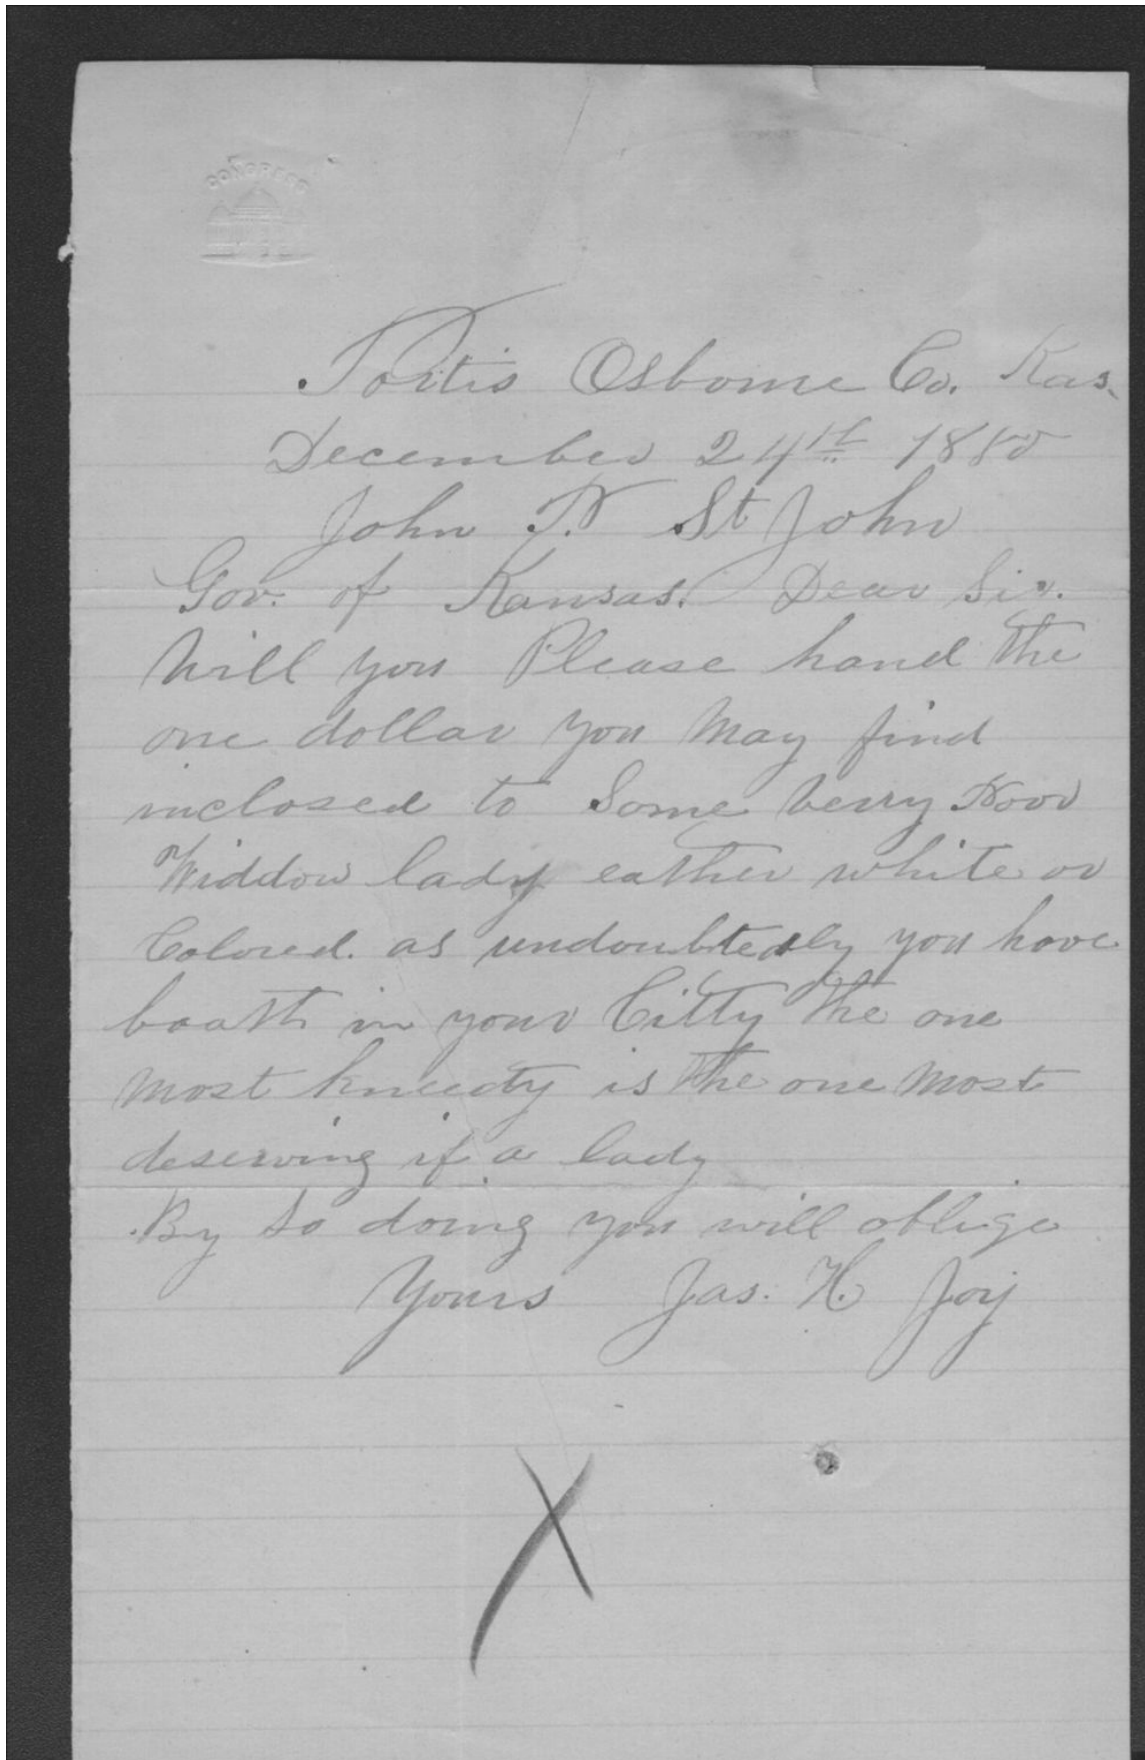 CONGRESS
Portis Osborne Co. Kas.
December 24th 1880
John P. St John
Gov. of Kansas. Dear Sir.
Will you Please hand the
one dollar you May find
inclosed to Some verry Poor
Widdow lady eather white or
Colored. as undoubtedly you have
boath in your Citty the one
most kneedy is the one most
deserving if a lady
By so doing you will oblige
Yours Jas. H. Joy
X